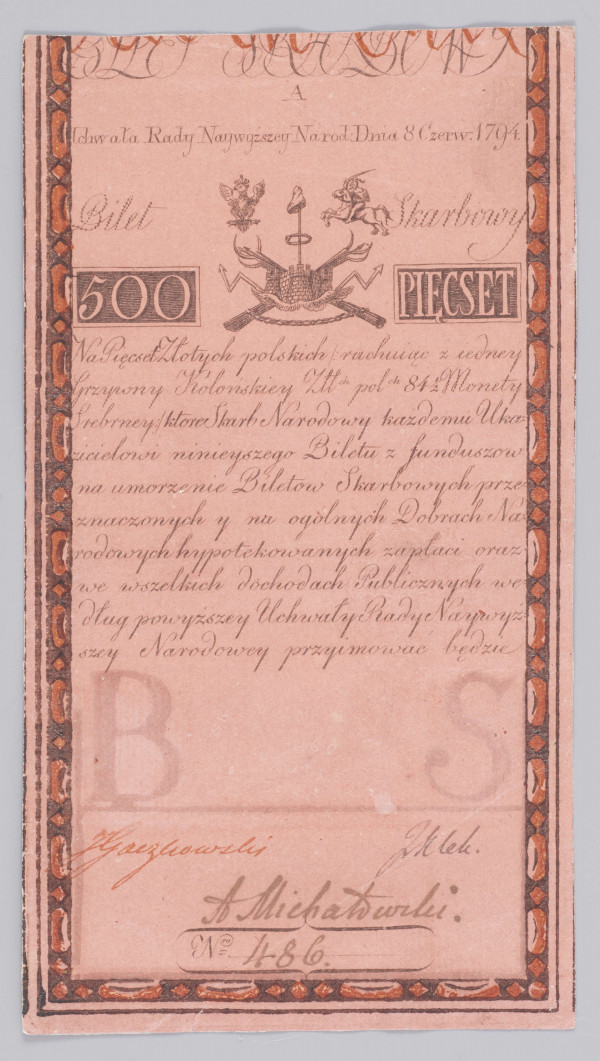 BILET SKARBOWY
A
Uchwała Rady Naywyzszey Narod: Dnia 8 Czerw: 1794.
Bilet Skarbowy
500 PIĘCSET
Na Pięcset Złotych polskich /: rachuiąc z iedney
Grzywny Kolońskiey Złł ch pol ch 84½ Monety
Srebrney :/ ktore Skarb Narodowy każdemu Uka-
zicielowi ninieyszego Biletu z funduszow
na umorzenie Biletow Skarbowych prze-
znaczonych y na ogólnych Dobrach Na-
rodowych hypotekowanych zapłaci oraz
we wszelkich dochodach Publicznych we-
dług powyższey Uchwały Rady Naywyż-
szey Narodowey przyimować będzie
B S
J Gaczkowski J Klek.
A Michałowski.
No 486.